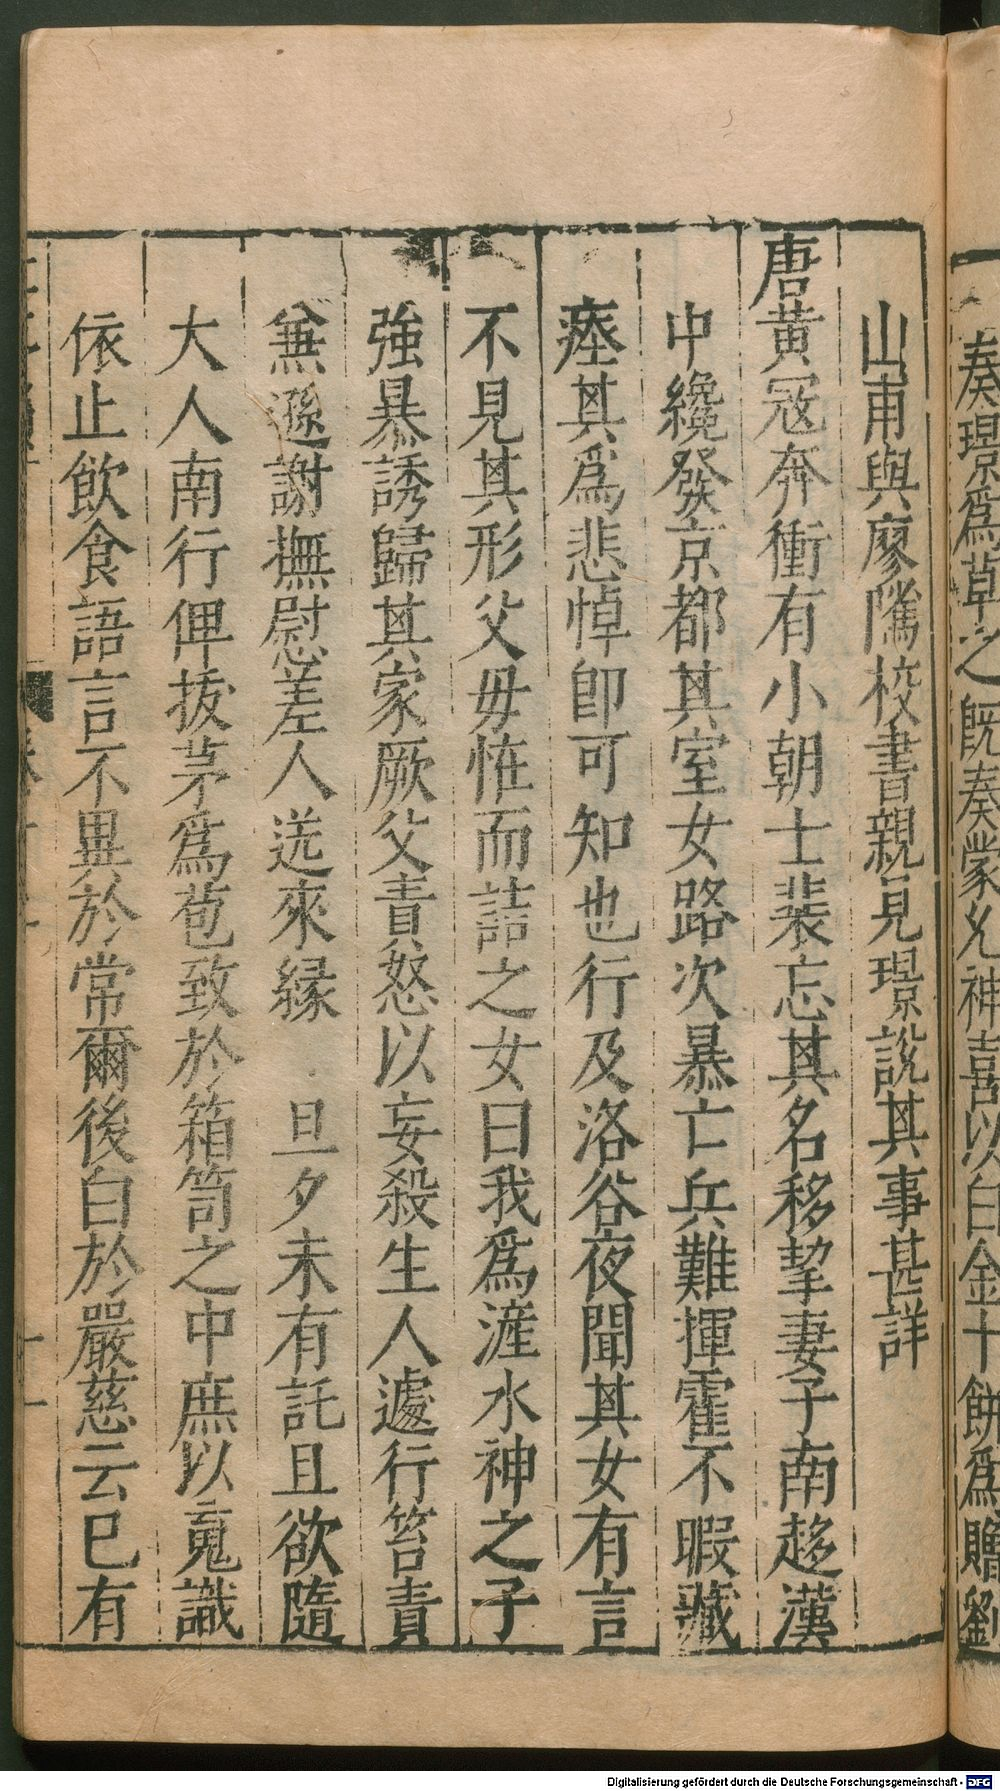 奏璟爲草之既奏蒙允神喜以白金十餅爲贈劉
山甫與廖隲校書親見璟說其事甚詳
唐黃冦奔衝有小朝士裴忘其名移挈妻子南趍漢
中纔發京都其室女路次暴亡兵難揮霍不暇藏
瘞其爲悲悼卽可知也行及洛谷夜聞其女有言
不見其形父毋恠而詰之女曰我爲滻水神之子
強暴誘歸其家厥父責怒以妄殺生人遽行笞責
兼遜謝撫慰差人送來縁 旦夕未有託且欲隨
大人南行俾拔茅爲苞致於箱笥之中庶以䰟識
依止飲食語言不異於常爾後白於嚴慈云已有
Digitalisierung gefördert durch die Deutsche Forschungsgemeinschaft - DFG